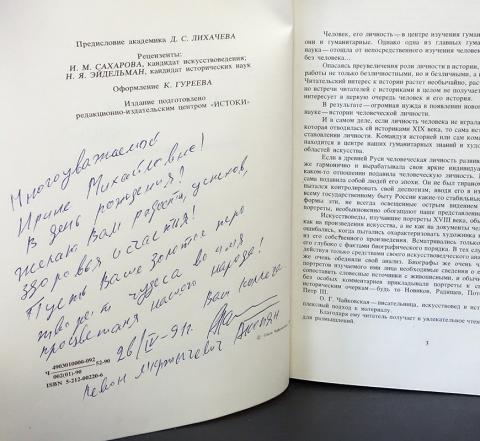 Предисловие академика Д. С. ЛИХАЧЕВА
Рецензенты:
И. М. САХАРОВА, кандидат искусствоведения;
Н. Я. ЭЙДЕЛЬМАН, кандидат исторических наук
Оформление К. ГУРЕЕВА
Издание подготовлено
редакционно-издательским центром «ИСТОКИ»
Многоуважаемой
Ирине Михайловне!
В день рождения!
желаю Вам радости, успехов,
здоровья и счастья!
Пусть Ваше золотое перо
творит чудеса во имя
процветания нашего народа!
Ваш коллега
26/IV-91г.
Левон Мкртычевич
Ч
4903010000-092
002(01)-90
52-90
ISBN 5-212-00220-6
Человек, его личность — в центре изучения гуман
они и гуманитарные. Однако одна из главных гума
наука — отошла от непосредственного изучения человек
без человека...
Опасаясь преувеличения роли личности в истории,
работы не только безличностными, но и безличными, а
Читательский интерес к истории растет необычайно, рас
но встречи читателей с историками в целом не получает
интересует в первую очередь человек и его история.
В результате — огромная нужда в появлении новог
науке — истории человеческой личности.
И в самом деле, если личность человека не играла
которая отводилась ей историками XIX века, то сама исто
личности. Командуя историей или сам кома
находится в центре наших гуманитарных знаний и худ
областей искусства.
Если в Древней Руси человеческая личность развив
же гармонично и вырабатывала свои яркие индивидуа
каком-то отношении подавила человеческую личность. И
сама подавила собой людей его эпохи. Он не был тираном
пытался контролировать свой деспотизм, вводя его в ин
всему государственному быту России какие-то стабильные
формы эти, не всегда освещенные острым зрением
портреты, необыкновенно обогащают наше представление
Искусствоведы, изучившие портреты XVIII века, обы
как на произведения искусства, а не как на документы ч
ошибались, когда пытались охарактеризовать художника в
из его собственного произведения. Всматривались только
его глубже с фактами биографического порядка. В тех слу
действуя только средствами своего искусствоведческого анали
же очень обедняли свой анализ. Биографы же очень ч
портретов изучаемого ими лица необходимые сведения о е
сопоставить словесные источники с живописными, и обычн
без особых комментариев прикладывали портреты к св
историческим очеркам — будь то Новиков, Радищев, Поте
Петр III.
О. Г. Чайковская — писательница, искусствовед и ист
плексный подход к материалу.
Благодаря ему читатель получает и увлекательное чтен
для размышлений.
3